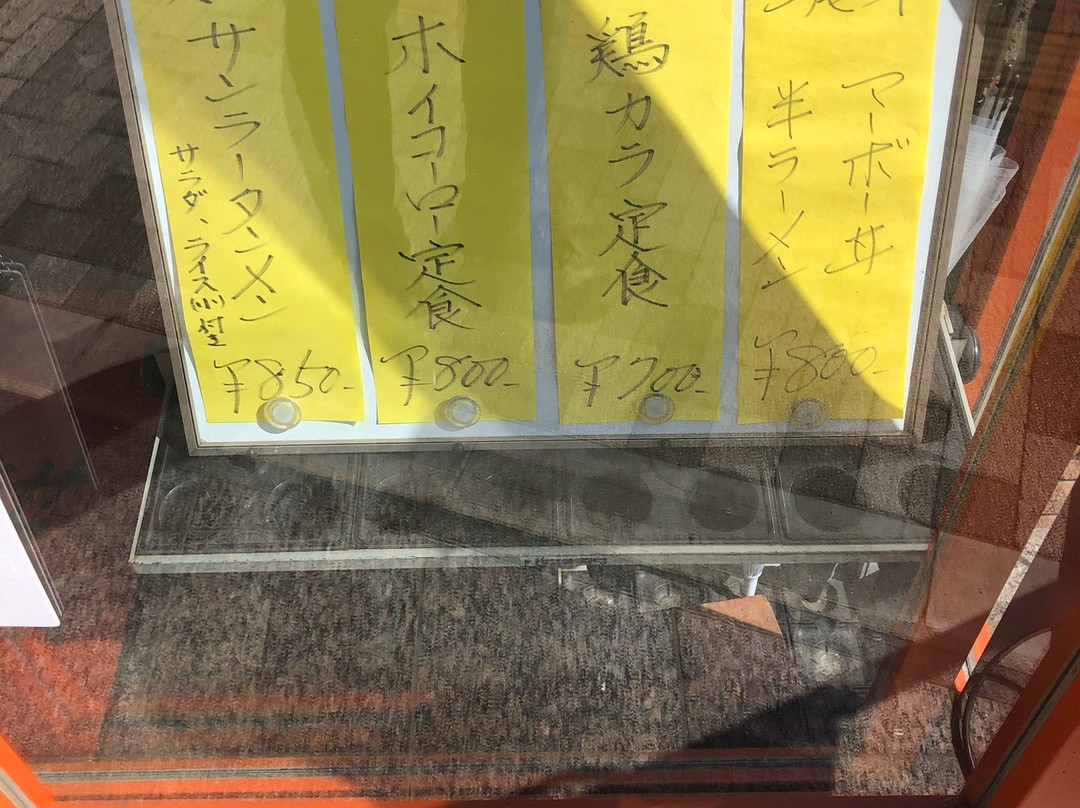 マーボー丼
半ラーメン
¥800-
鶏カラ定食
¥700-
ホイコーロー定食
¥800-
サンラータンメン
サラダ、ライス(小)付き
¥850-